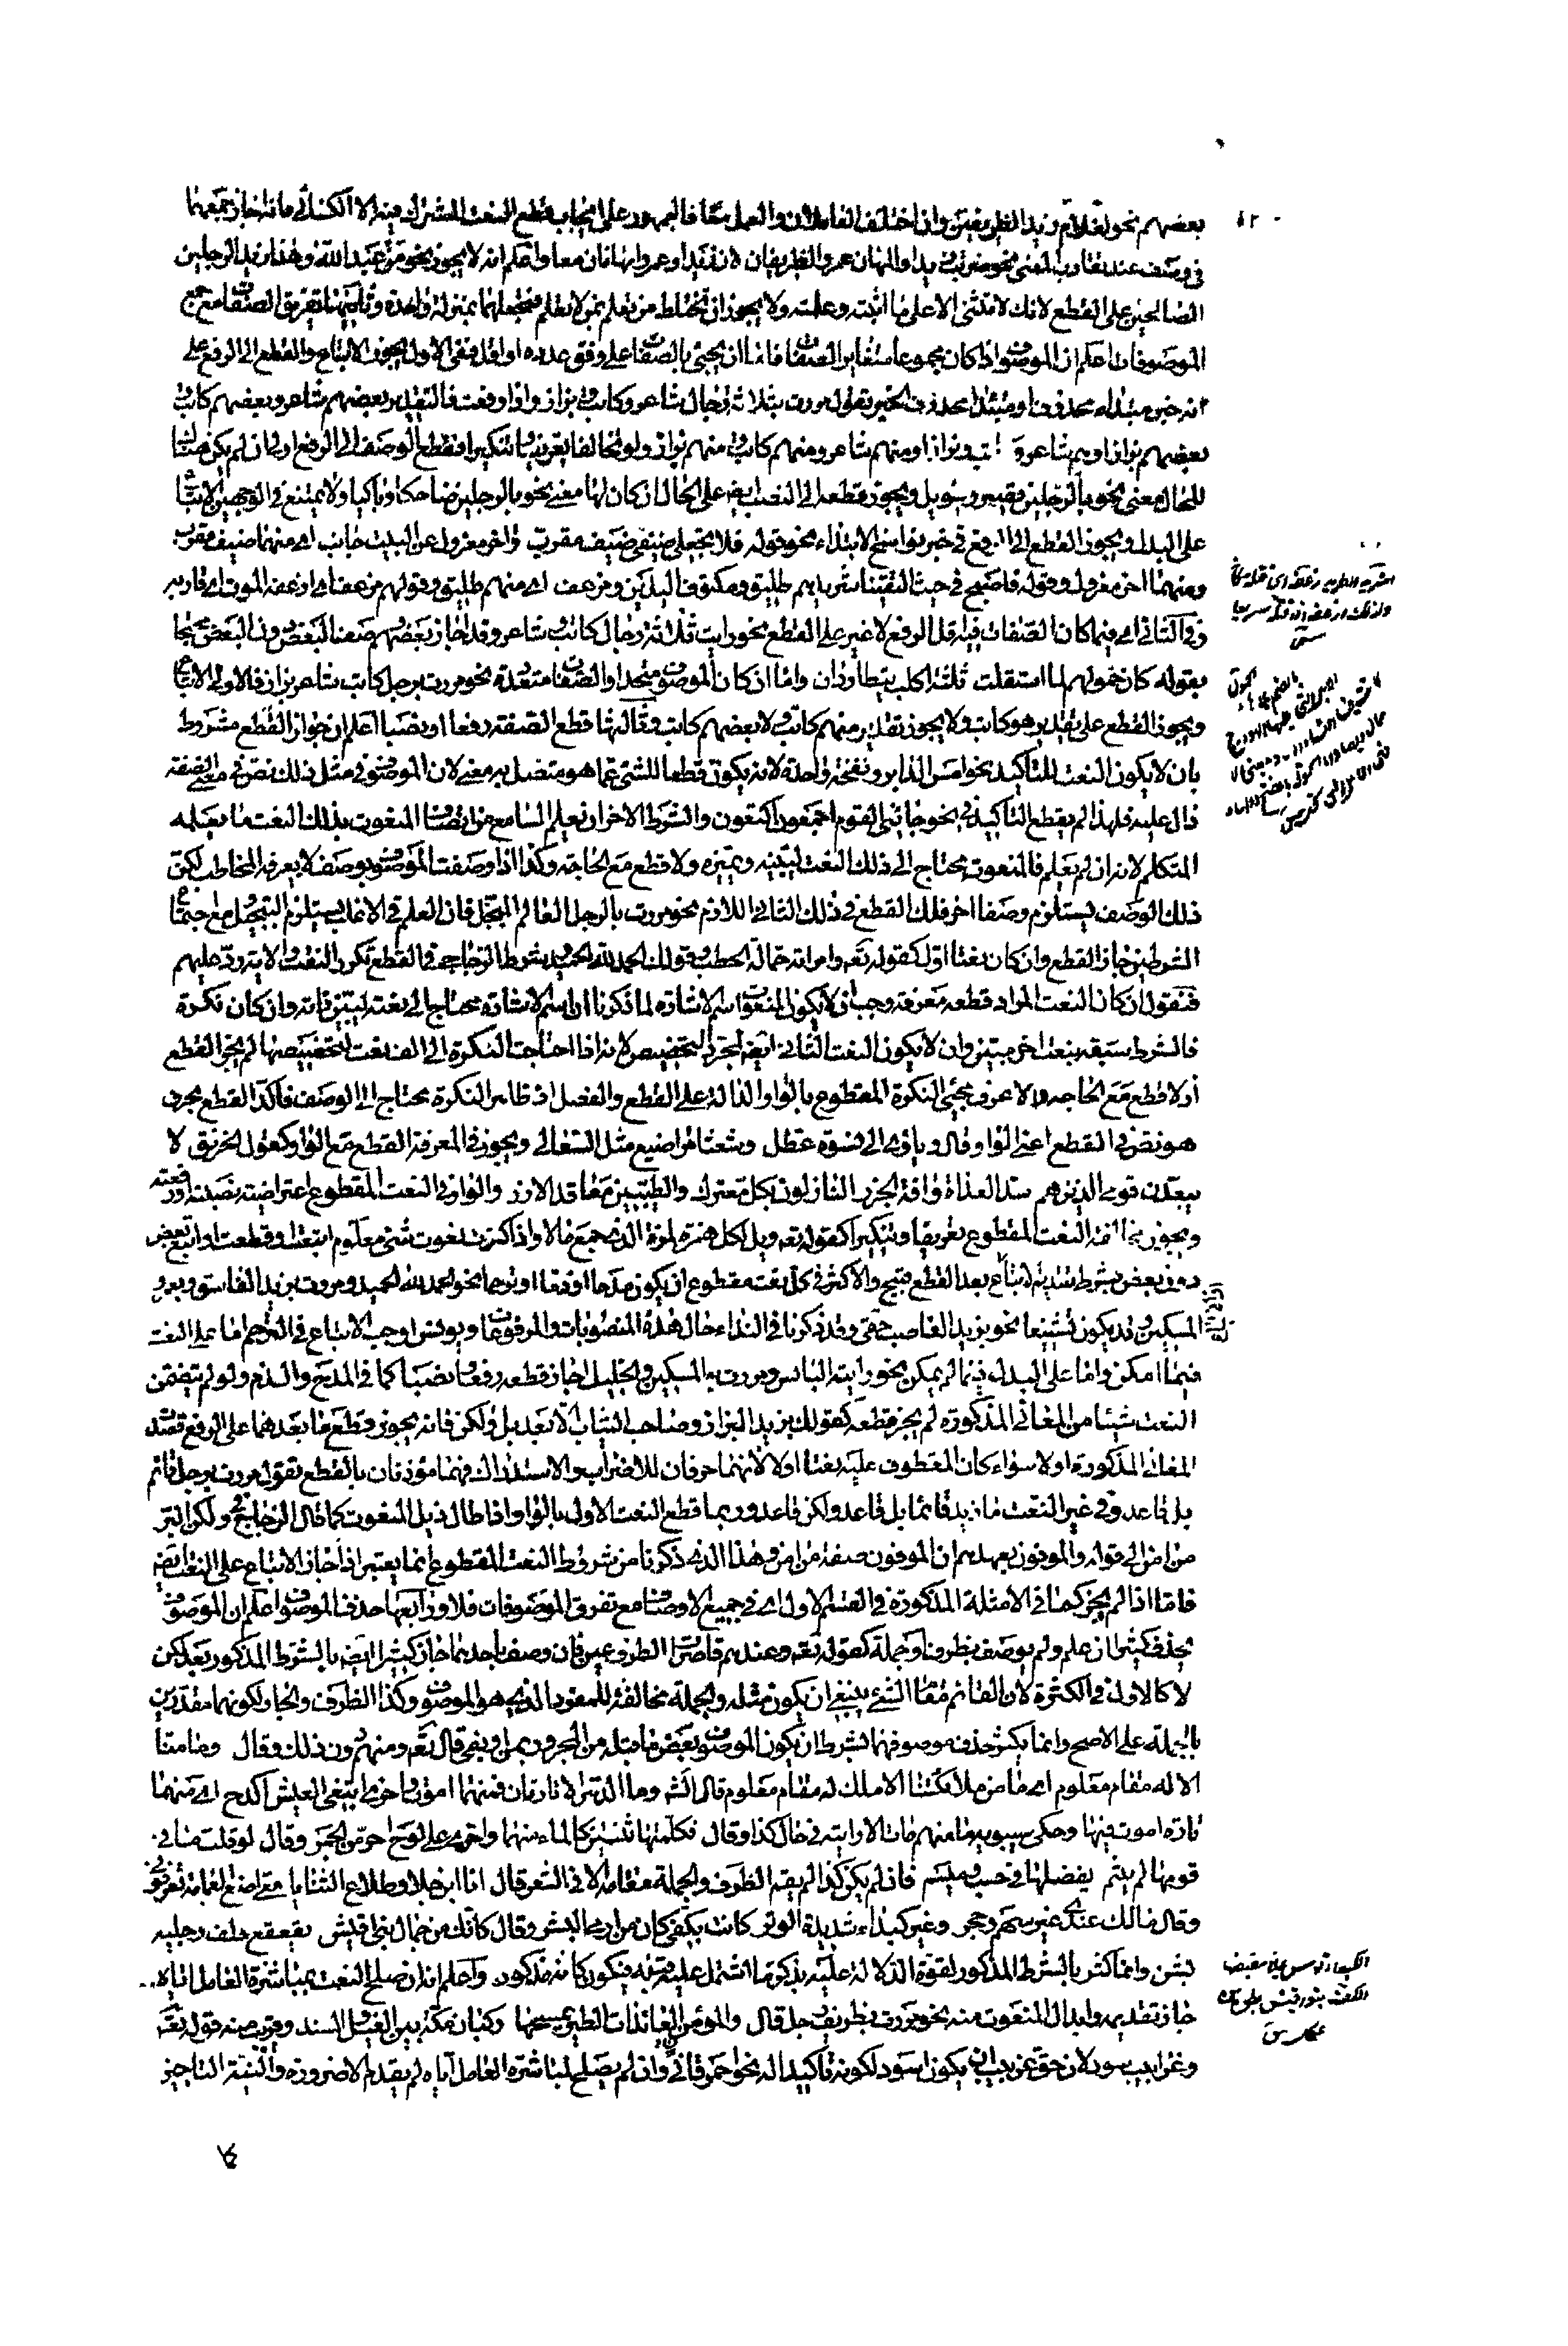 بعضهم نحو لغلام زيد الظريفين واذا اختلف العاملان والعمل معا فالجمهور على ايجاب قطع النعت المشترك فيه الا الكسائي فانه اجاز جمعهما
في وصف عند تقارب المعنى نحو ضربت زيدا والمهان عمرو الظريفان لان زيدا وعمرا مهانان معا واعلم انه لا يجوز نحو من عبد الله وهذا زيد الرجلين
الصالحين على القطع لانك لا تثنى الا على ما اثبته وعلمته ولا يجوز ان تخلط من تعلم بمن لا تعلم فتجعلهما بمنزلة واحدة وثانيهما تفريق الصفات مع جمع
الموصوفات اعلم ان الموصوف اذا كان مجموعا متغاير الصفات فاما ان يجئ بالصفات على وفق عدده او اقل ففى الاول يجوز الاتباع والقطع الى الرفع على
انه خبر مبتداء محذوف او مبتدأ محذوف الخبر تقول مررت بثلاثة رجال شاعر وكاتب وبزاز واذا رفعت فالتقدير بعضهم شاعر وبعضهم كاتب
بعضهم بزاز او هم شاعر و وبزاز او منهم شاعر ومنهم كاتب ومنهم بزاز ولو تخالفا تعريفا وتنكيرا فقطع الوصف الى الرفع اولى ان لم يكن
للحال معنى نحو بالرجلين قصير وطويل ويجوز قطعه الى النصب ايضا على الحال ان كان لها معنى نحو بالرجلين ضاحكا وباكيا ولا يمتنع في الوجهين الاتباع
على البدل ويجوز القطع الى الرفع في خبر نواسخ الابتداء نحو قوله فلا تجعلى ضيفى ضيف مقرب واخر معزول عن البيت جانب اى منهما ضيف مقرب
ومنهما اخر معزول وقوله فاصبح في حيث التقينا شريدهم طليق ومكتوف اليدين ومزعف اى منهم طليق وقولهم مزعف اى
وفى الثاني اى فيما كان الصفات فيه اقل الرفع لا غير على القطع نحو رايت ثلاثة رجال كاتب وشاعر وقد اجاز بعضهم وصف البعض دون البعض محتجا
بقوله كان حمولهم لما استقلت ثلاثة اكلب يتطاردان واما ان كان الموصوف متحدا والصفات متعددة نحو مررت برجل كاتب شاعر بزاز فالاولى الاتباع
ويجوز القطع على تقدير هو كاتب ولا يجوز تقدير منهم كاتب ولا بعضهم كاتب وثالثها قطع الصفة رفعا او نصبا اعلم ان جواز القطع مشروط
بان لا يكون النعت للتاكيد نحو امس الدابر ونفخة واحدة لانه يكون قطعا للشئ عما هو متصل به معنى لان الموصوف في مثل ذلك نص في معنى الصفة
دال عليه فلهذا لم يقطع التاكيد في نحو جاءنى القوم اجمعون اكتعون والشرط الاخر ان يعلم السامع من اتصاف المنعوت بذلك النعت ما يعلمه
المتكلم لانه ان لم يعلم فالمنعوت محتاج الى ذلك النعت ليبينه ويميزه ولا قطع مع الحاجة وكذا اذا وصفت الموصوف بوصف لا يعرفه المخاطب لكن
ذلك الوصف يستلزم وصفا اخر فلك القطع في ذلك الثاني اللازم نحو مررت بالرجل العالم المبجل فان العلم في الاغلب يستلزم التبجيل ومع اجتماع
الشرطين جاز القطع وان كان نعتا اول كقوله تع وامراته حمالة الحطب وقولك الحمد لله الحميد وشرط الزجاجى في القطع تكرر النعت والاية رد عليهم
فنقول ان كان النعت المراد قطعه معرفة وجب ان لا يكون المنعوت اسم الاشارة لما ذكرنا ان اسم الاشارة محتاج الى نعته لتبيين ذاته وان كان نكرة
فالشرط سبقه بنعت اخر مبين وان لا يكون النعت الثاني ايضا لمجرد التخصيص لانه اذا احتاجت النكرة الى الف نعت لتخصيصها لم يجز القطع
اذ لا قطع مع الحاجة والاعرف مجئ النكرة المقطوع بالواو الدالة على القطع والفصل اذ ظاهر النكرة محتاج الى الوصف فاكد القطع بحرف
هو نص في القطع اعنى الواو قال ويأوى الى نسوة عطل وشعثا مراضيع مثل السعالى ويجوز في المعرفة القطع مع الواو كقول الخرنق لا
يبعدن قومى الذين هم سم العداة وآفة الجزر النازلون بكل معترك والطيبين معاقد الازر والواو في النعت المقطوع اعتراضية نصبته او رفعته
ويجوز مخالفة النعت المقطوع تعريفا وتنكيرا كقوله تع ويل لكل همزة لمزة الذى جمع مالا واذا كثرت نعوت شئ معلوم اتبعت او قطعت او اتبع بعض
دون بعض بشرط تقديم الاتباع بعد القطع قبيح والاكثر في كل نعت مقطوع ان يكون مدحا او ذما او ترحما نحو الحمد لله الحميد ومررت بزيد الفاسق وبعمرو
المسكين وقد يكون تشنيعا نحو بزيد الغاصب حقى وقد ذكرنا في النداء حال هذه المنصوبات والمرفوعات ويونس اوجب الاتباع في الترحم اما على النعت
فيما امكن واما على البدل فيما لم يمكن نحو رايته البائس ومررت به المسكين والخليل اجاز قطعه رفعا ونصبا كما في المدح والذم ولو لم يتضمن
النعت شيئا من المعاني المذكورة لم يجز قطعه كقولك بزيد البزاز وصاحب الثياب الا بعد بل ولكن فانه يجوز قطع ما بعدهما على الرفع قصدت
المعاني المذكورة اولا سواء كان المعطوف عليه نعتا اولا لانهما حرفان للاضراب والاستدراك فهما مؤذنان بالقطع تقول مررت برجل قائم
بل قاعد وفي غير النعت ما زيد قائما بل قاعد ولكن قاعد وربما قطع النعت الاول بالواو اذا طال ذيل المنعوت كما قال الزجاج في ولكن البر
من امن الى قوله والموفون بعهدهم ان الموفون صفة من امن وهذا الذى ذكرنا من شروط النعت المقطوع انما يعتبر اذا جاز الاتباع على النعت ايضا
فاما اذا لم يجز كما في الامثلة المذكورة في القسم الاول اى في جميع الاوصاف مع تفرق الموصوفات فلا ورابعها حذف الموصوف اعلم ان الموصوف
يحذف كثيرا ان علم ولم يوصف بظرف او جملة كقوله تع وعندهم قاصرات الطرف عين فان وصف باحدهما جاز كثيرا ايضا بالشرط المذكور بعد لكن
لا كالاول في الكثرة لان القائم مقام الشئ ينبغي ان يكون مثله والجملة مخالفة للمفرد الذى هو الموصوف وكذا الظرف والجار لكونهما مقدرين
بالجملة على الاصح وانما يكثر حذف موصوفهما بشرط ان يكون الموصوف بعض ما قبله من المجرور بمن او بفى قال تع ومنهم دون ذلك وقال وما منا
الا له مقام معلوم اى ما من ملائكتنا الا ملك له مقام معلوم قال الش وما الدهر الا تارتان فمنهما اموت واخرى ابتغى العيش اكدح اى منهما
تارة اموت فيها وحكى سيبويه ما منهم مات الا رايته في حال كذا وقال فكلمتها ثنتين كالماء منهما واخرى على لوح احر من الجمر وقال لو قلت ما في
قومها لم تيثم يفضلها في حسب وميسم فان لم يكن كذا لم يقم الظرف والجملة مقامه الا في الشعر قال انا ابن جلا وطلاع الثنايا متى اضع العمامة تعرفونى
وقال مالك عندى غير سهم وحجر وغير كبداء شديدة الوتر كانت بكفى كان من ارمى البشر وقال كانك من جمال بنى اقيش يقعقع خلف رجليه
بشن وانما كثر بالشرط المذكور لقوة الدلالة عليه بذكر ما اشتمل عليه قبله فيكون كانه مذكور واعلم انه ان صلح النعت لمباشرة العامل اياه
جاز تقديمه وابدال المنعوت منه نحو مررت بظريف رجل قال والمؤمن العائذات الطير يمسحها ركبان مكة بين الغيل والسند وقريب منه قوله تع
وغرابيب سود لان حق غربيب ان يكون اسود لكونه تاكيدا له نحو احمر قانى وان لم يصلح لمباشرة العامل اياه لم يقدم الا ضرورة والنية التاخير